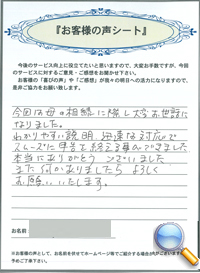 『お客様の声シート』
今後のサービス向上に役立てたいと思いますので、大変お手数ですが、今回
のサービスに対するご意見・ご感想をお聞かせ下さい。
お客様の「喜びの声」や「ご感想」が我々の明日への活力になりますので、是
非ご協力をお願い致します。
今回は母の相続に際し大変お世話に
なりました。
わかりやすい説明、迅速な対応で
スムーズに申告を終える事ができました
本当にありがとうございました
また何かありましたらよろしく
お願いいたします。
お名前
※お客様の声として、お名前を伏せてホームページ等でご紹介する場合が
予めご了承下さい。